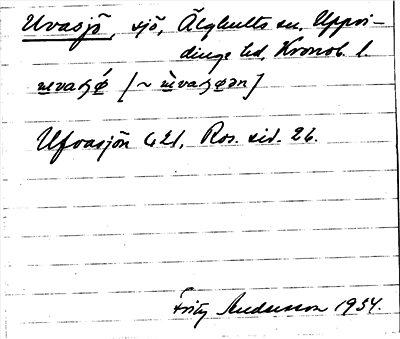 Uvasjö, sjö, Älghults sn. Uppvi-
dinge hd, Kronob. l.
Ufvasjön G.E.1, Ros. sid. 26.
Fritz Andersson 1934.